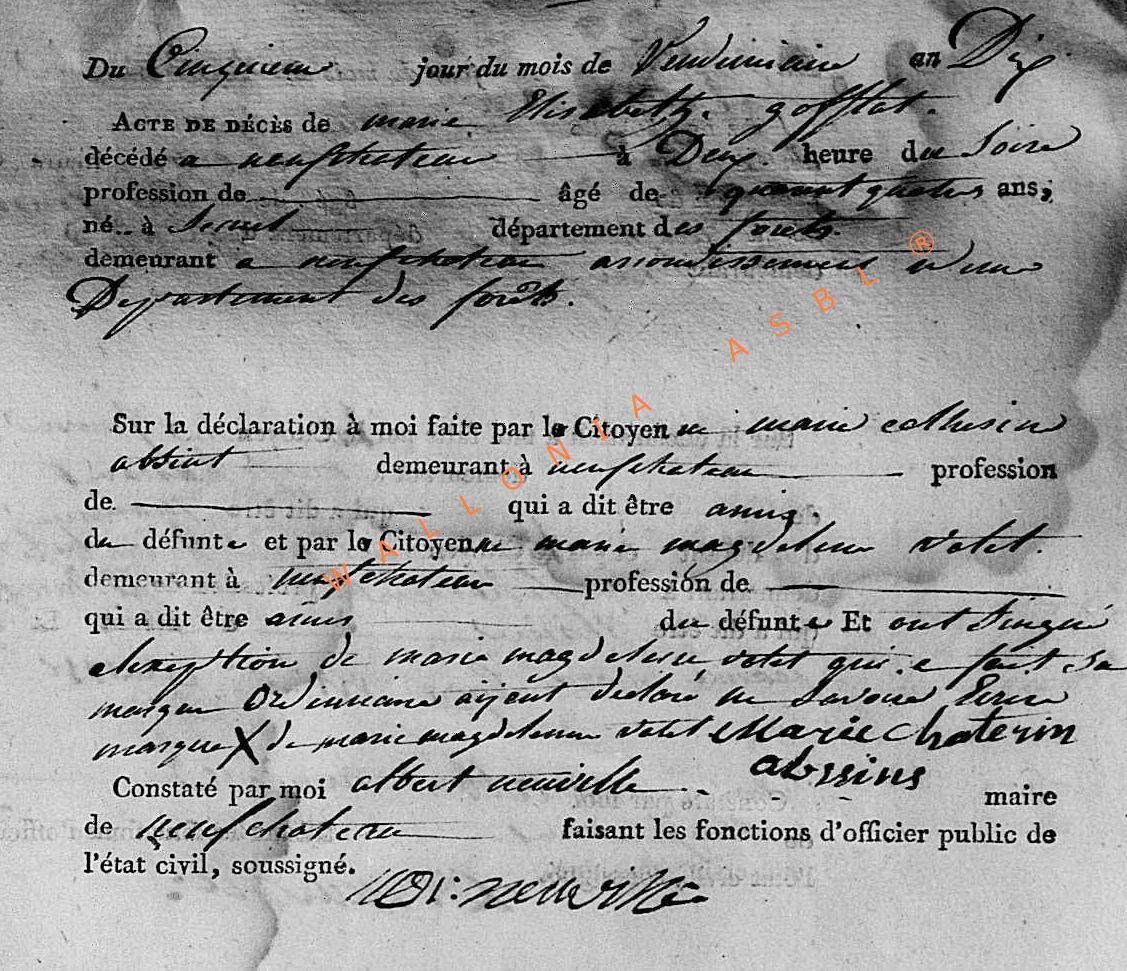 Du Cinquieme jour du mois de Vendimiaire an Dix
ACTE DE DÉCÈS de marie Elisabeth. gofflot.
décédé a neufchateau à Deux heure du Soire
profession de âgé de quarant quatres ans,
né à département des forêts.
demeurant a neufchateau arrondissement
Département des forêts.
Sur la déclaration à moi faite par le Citoyenne marie catherine
absint demeurant à neufchateau profession
de qui a dit être amis.
du défunte et par le Citoyenne marie magdelene votet.
demeurant à neufchateau profession de
qui a dit être amis du défunte Et ont Singné
de marie magdelene votet qui a fait sa
marque Ordinnaire aijent declaré ne Savoire Ecrire
marque X de marie magdelenne votet Marie Chaterin
abssins
Constaté par moi albert neuville maire
de neufchateau faisant les fonctions d'officier public de
l'état civil, soussigné.
neuville
WALLONIA ASBL ®